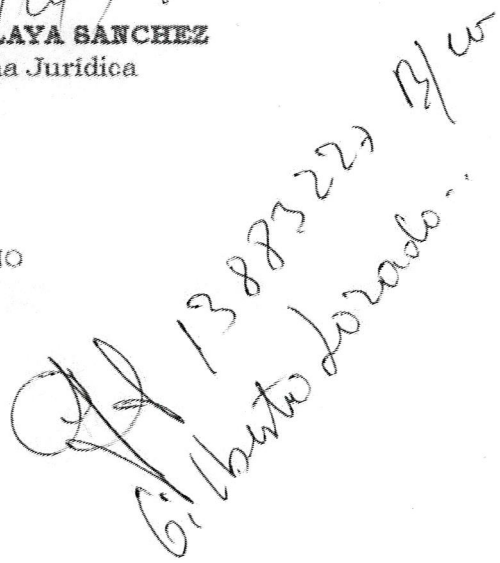 LAYA SANCHEZ
na Jurídica
IO
13883227 B/
Gilberto Lozado..